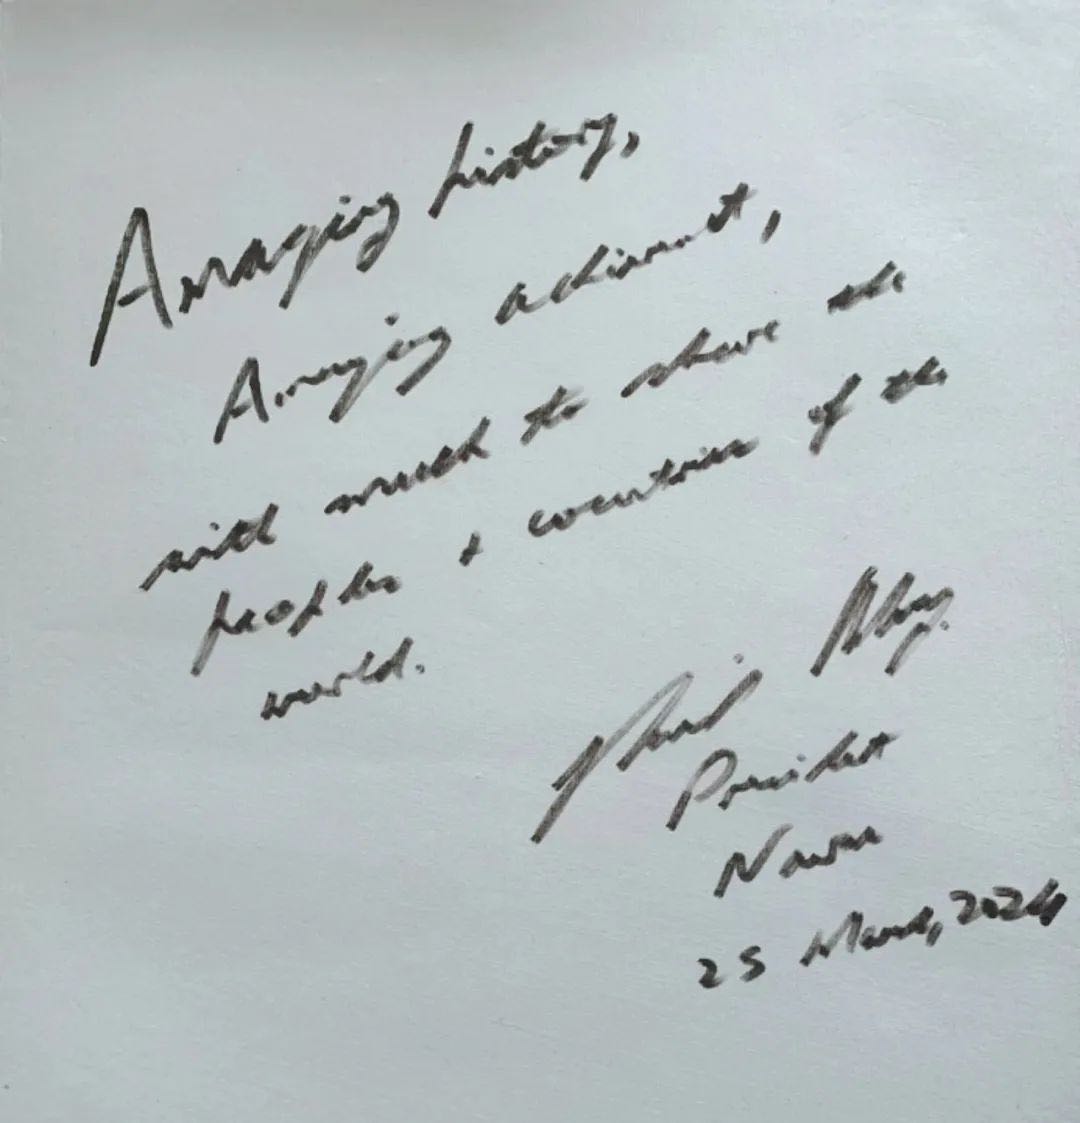 Amazing history,
Amazing achievment,
with much to share the
peoples + countries of the
world.
President
Nauru
25 March, 2024